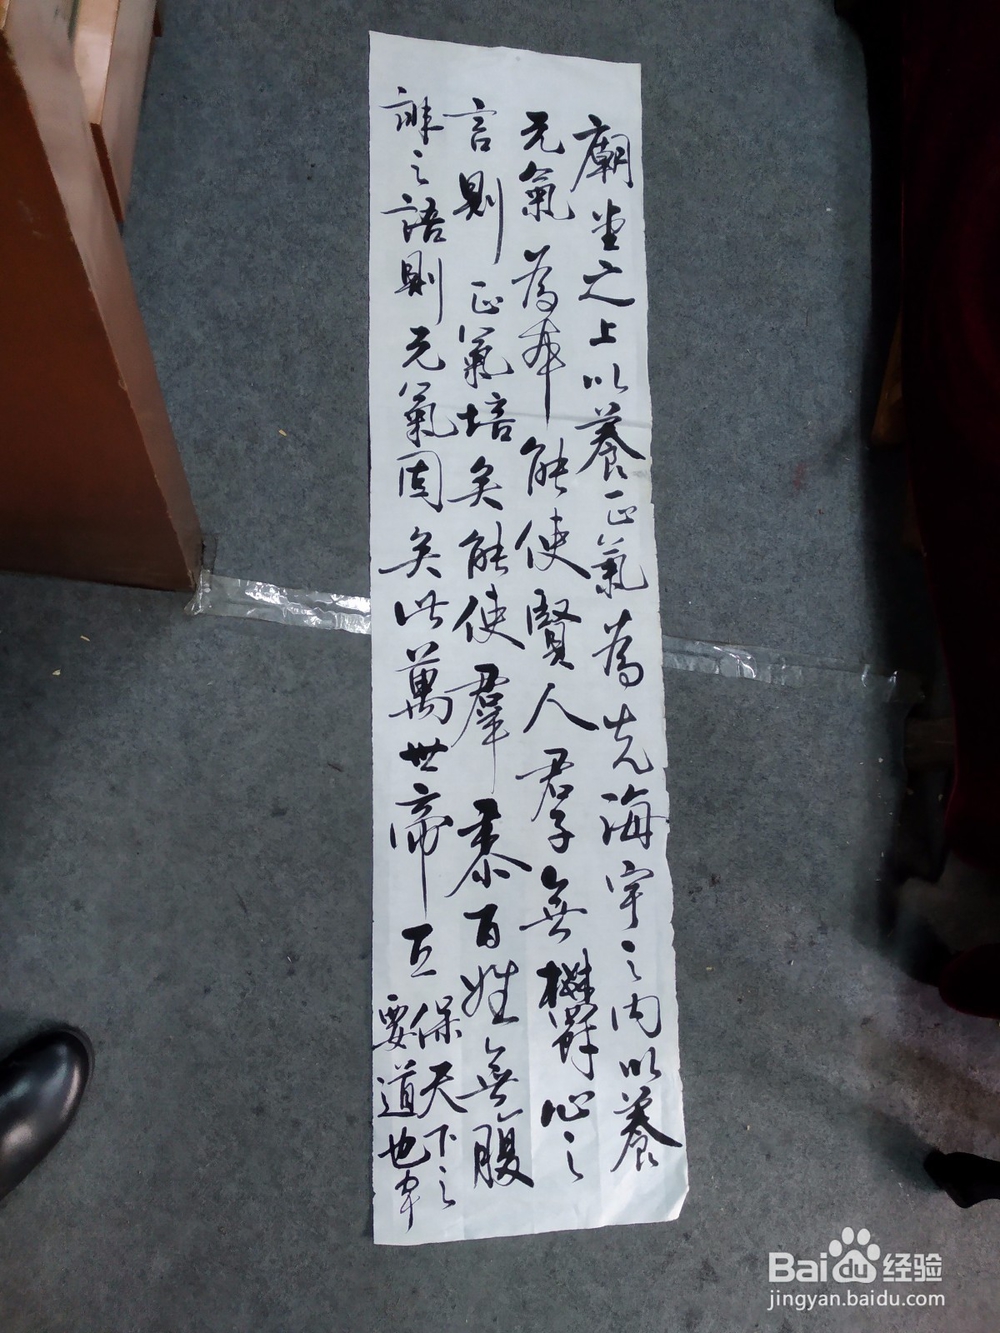 廟堂之上以養正氣為先海宇之内以養
元氣為本能使賢人君子無鬱心之
言則正氣培矣能使羣黎百姓無腹
誹之語則元氣固矣此萬世帝王
保天下之
要道也
Baidu经验
jingyan.baidu.com